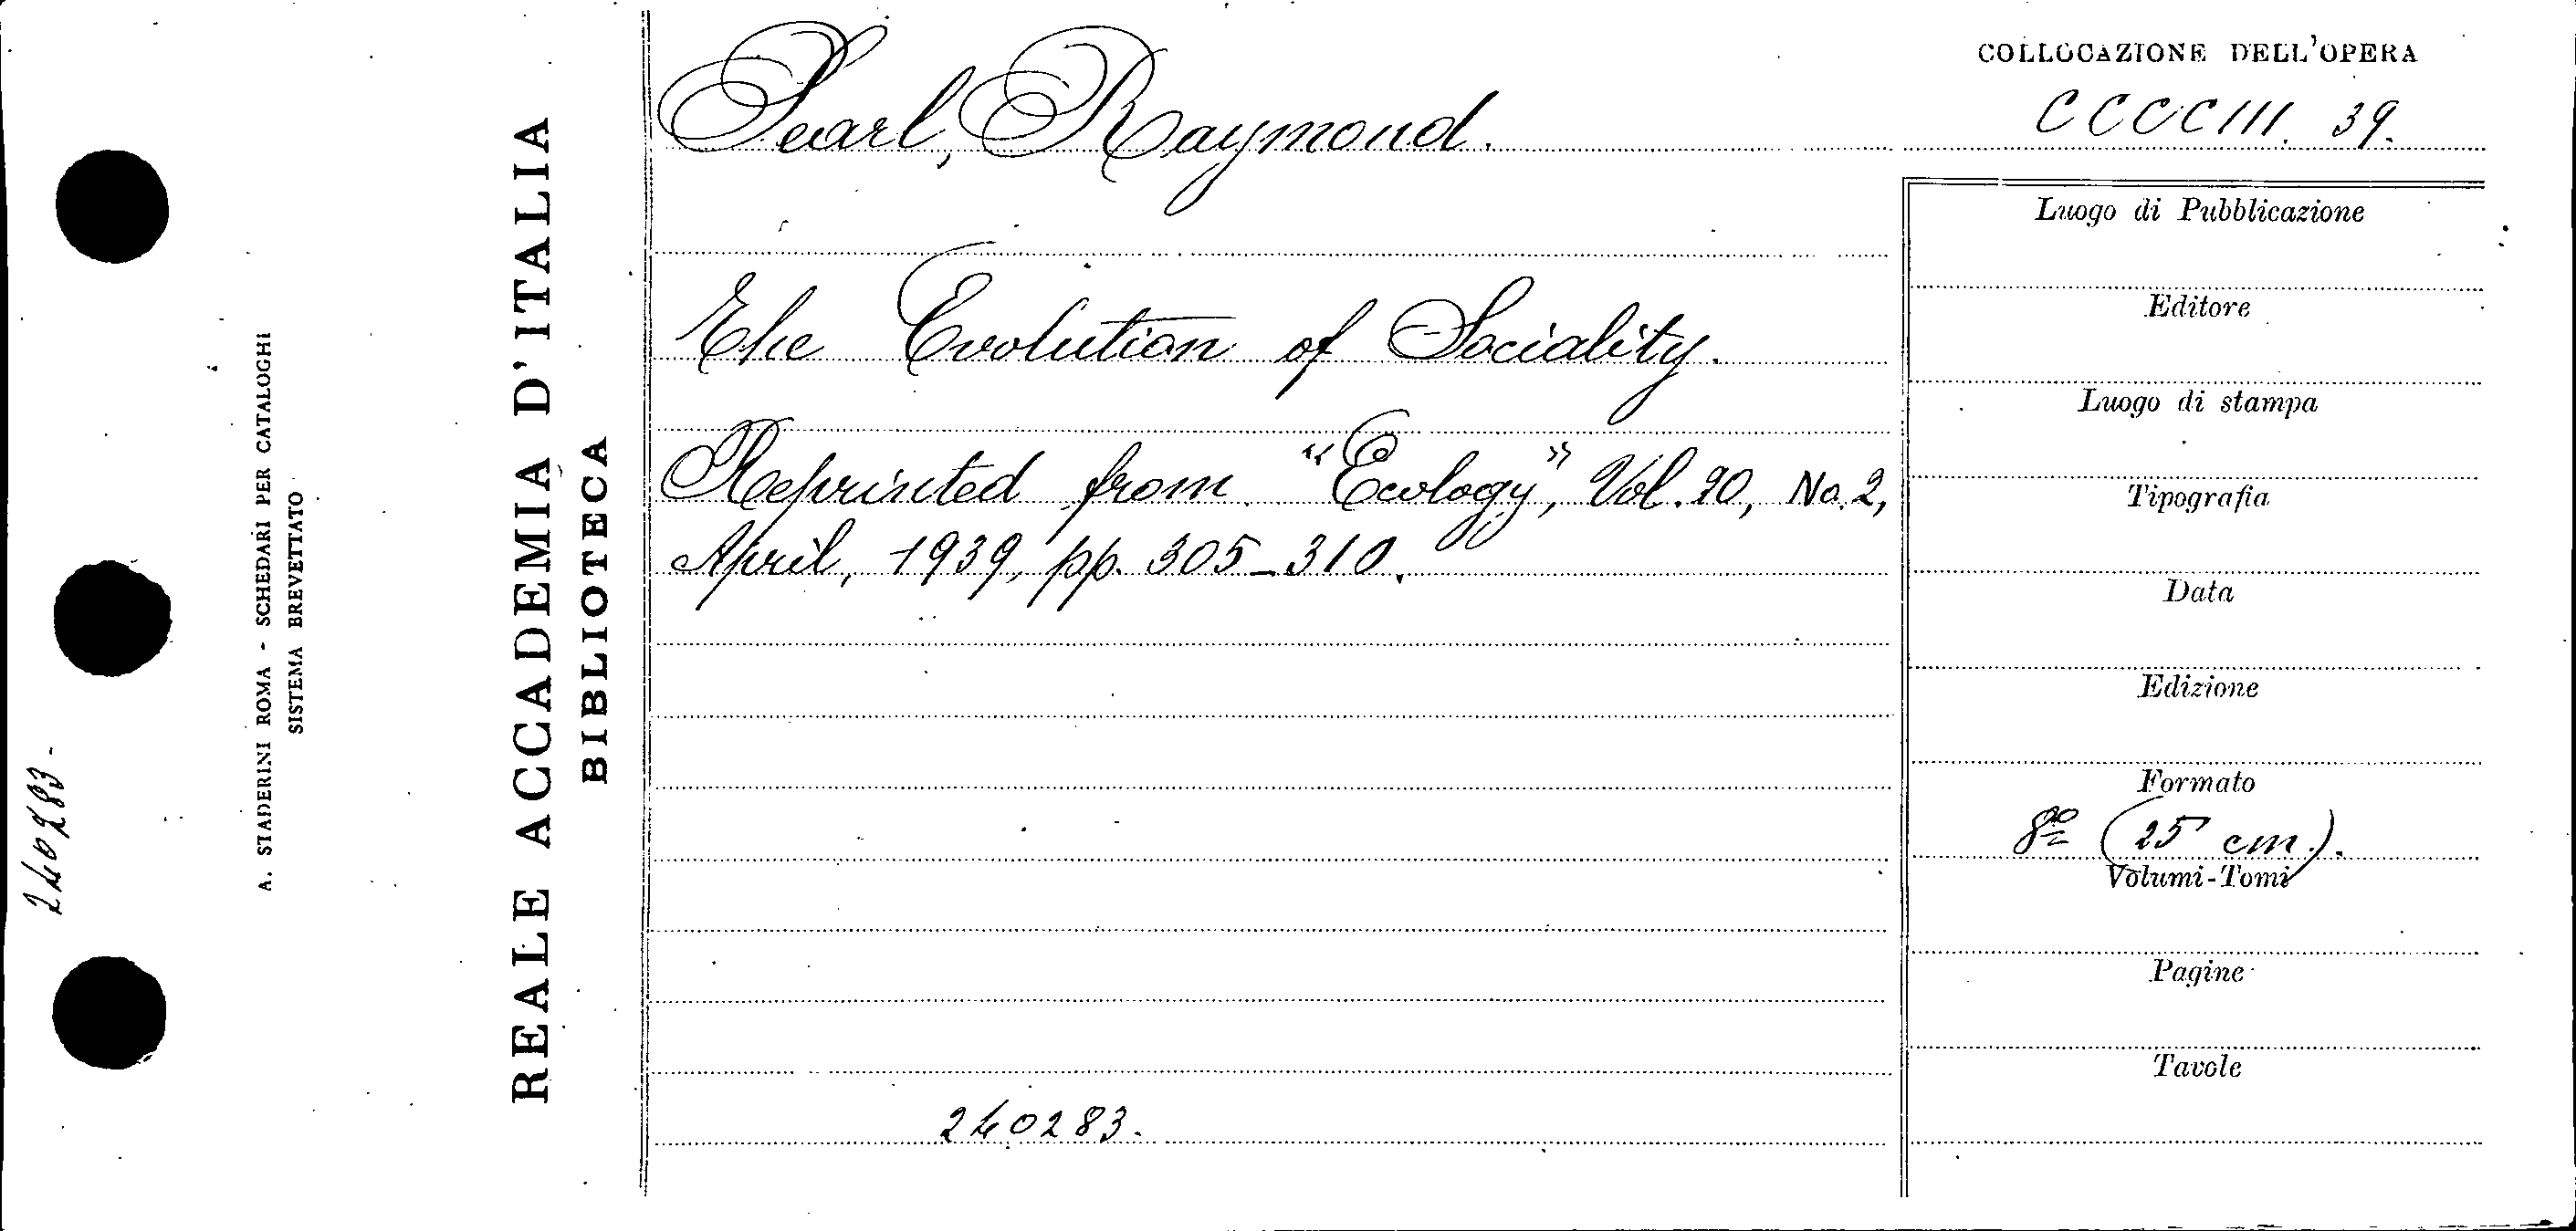 Pearl, Raymond.
The Evolution of Sociality.
Reprinted from "Ecology", Vol. 20, No. 2,
April, 1939, pp. 305-310.
240283.
COLLOCAZIONE DELL'OPERA
CCCCIII. 39.
Luogo di Pubblicazione
Editore
Luogo di stampa
Tipografia
Data
Edizione
Formato
8º (25 cm.).
Volumi-Tomi
Pagine
Tavole
REALE ACCADEMIA D'ITALIA
BIBLIOTECA
A. STADERINI ROMA - SCHEDARI PER CATALOGHI
SISTEMA BREVETTATO
240283-